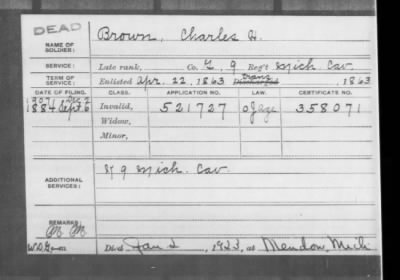 DEAD
NAME OF SOLDIER: Brown, Charles H.
SERVICE: Late rank, Co. G, 9 Reg't Mich Cav.
TERM OF SERVICE: Enlisted Apr. 22, 1863 trans Discharged , 1863
DATE OF FILING. CLASS. APPLICATION NO. LAW. CERTIFICATE NO.
1907 Dec 2
1884 Sept 6 Invalid, 521727 358071
Widow,
Minor,
ADDITIONAL SERVICES: 9 Mich. Cav.
REMARKS:
Died Jan 2, 1923, at Mendon, Mich